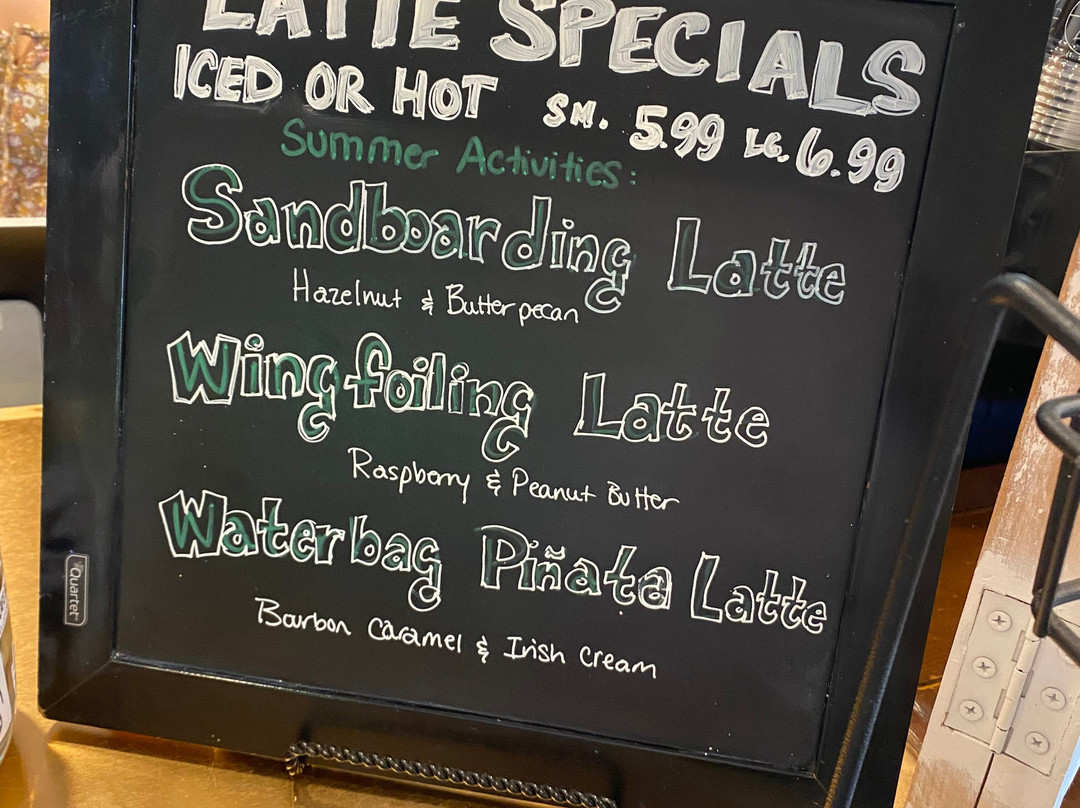 LATTE SPECIALS
ICED OR HOT SM. 5.99 LG. 6.99
Summer Activities:
Sandboarding Latte
Hazelnut & Butter pecan
Wingfoiling Latte
Raspberry & Peanut Butter
Waterbag Piñata Latte
Bourbon Caramel & Irish Cream
Quartet